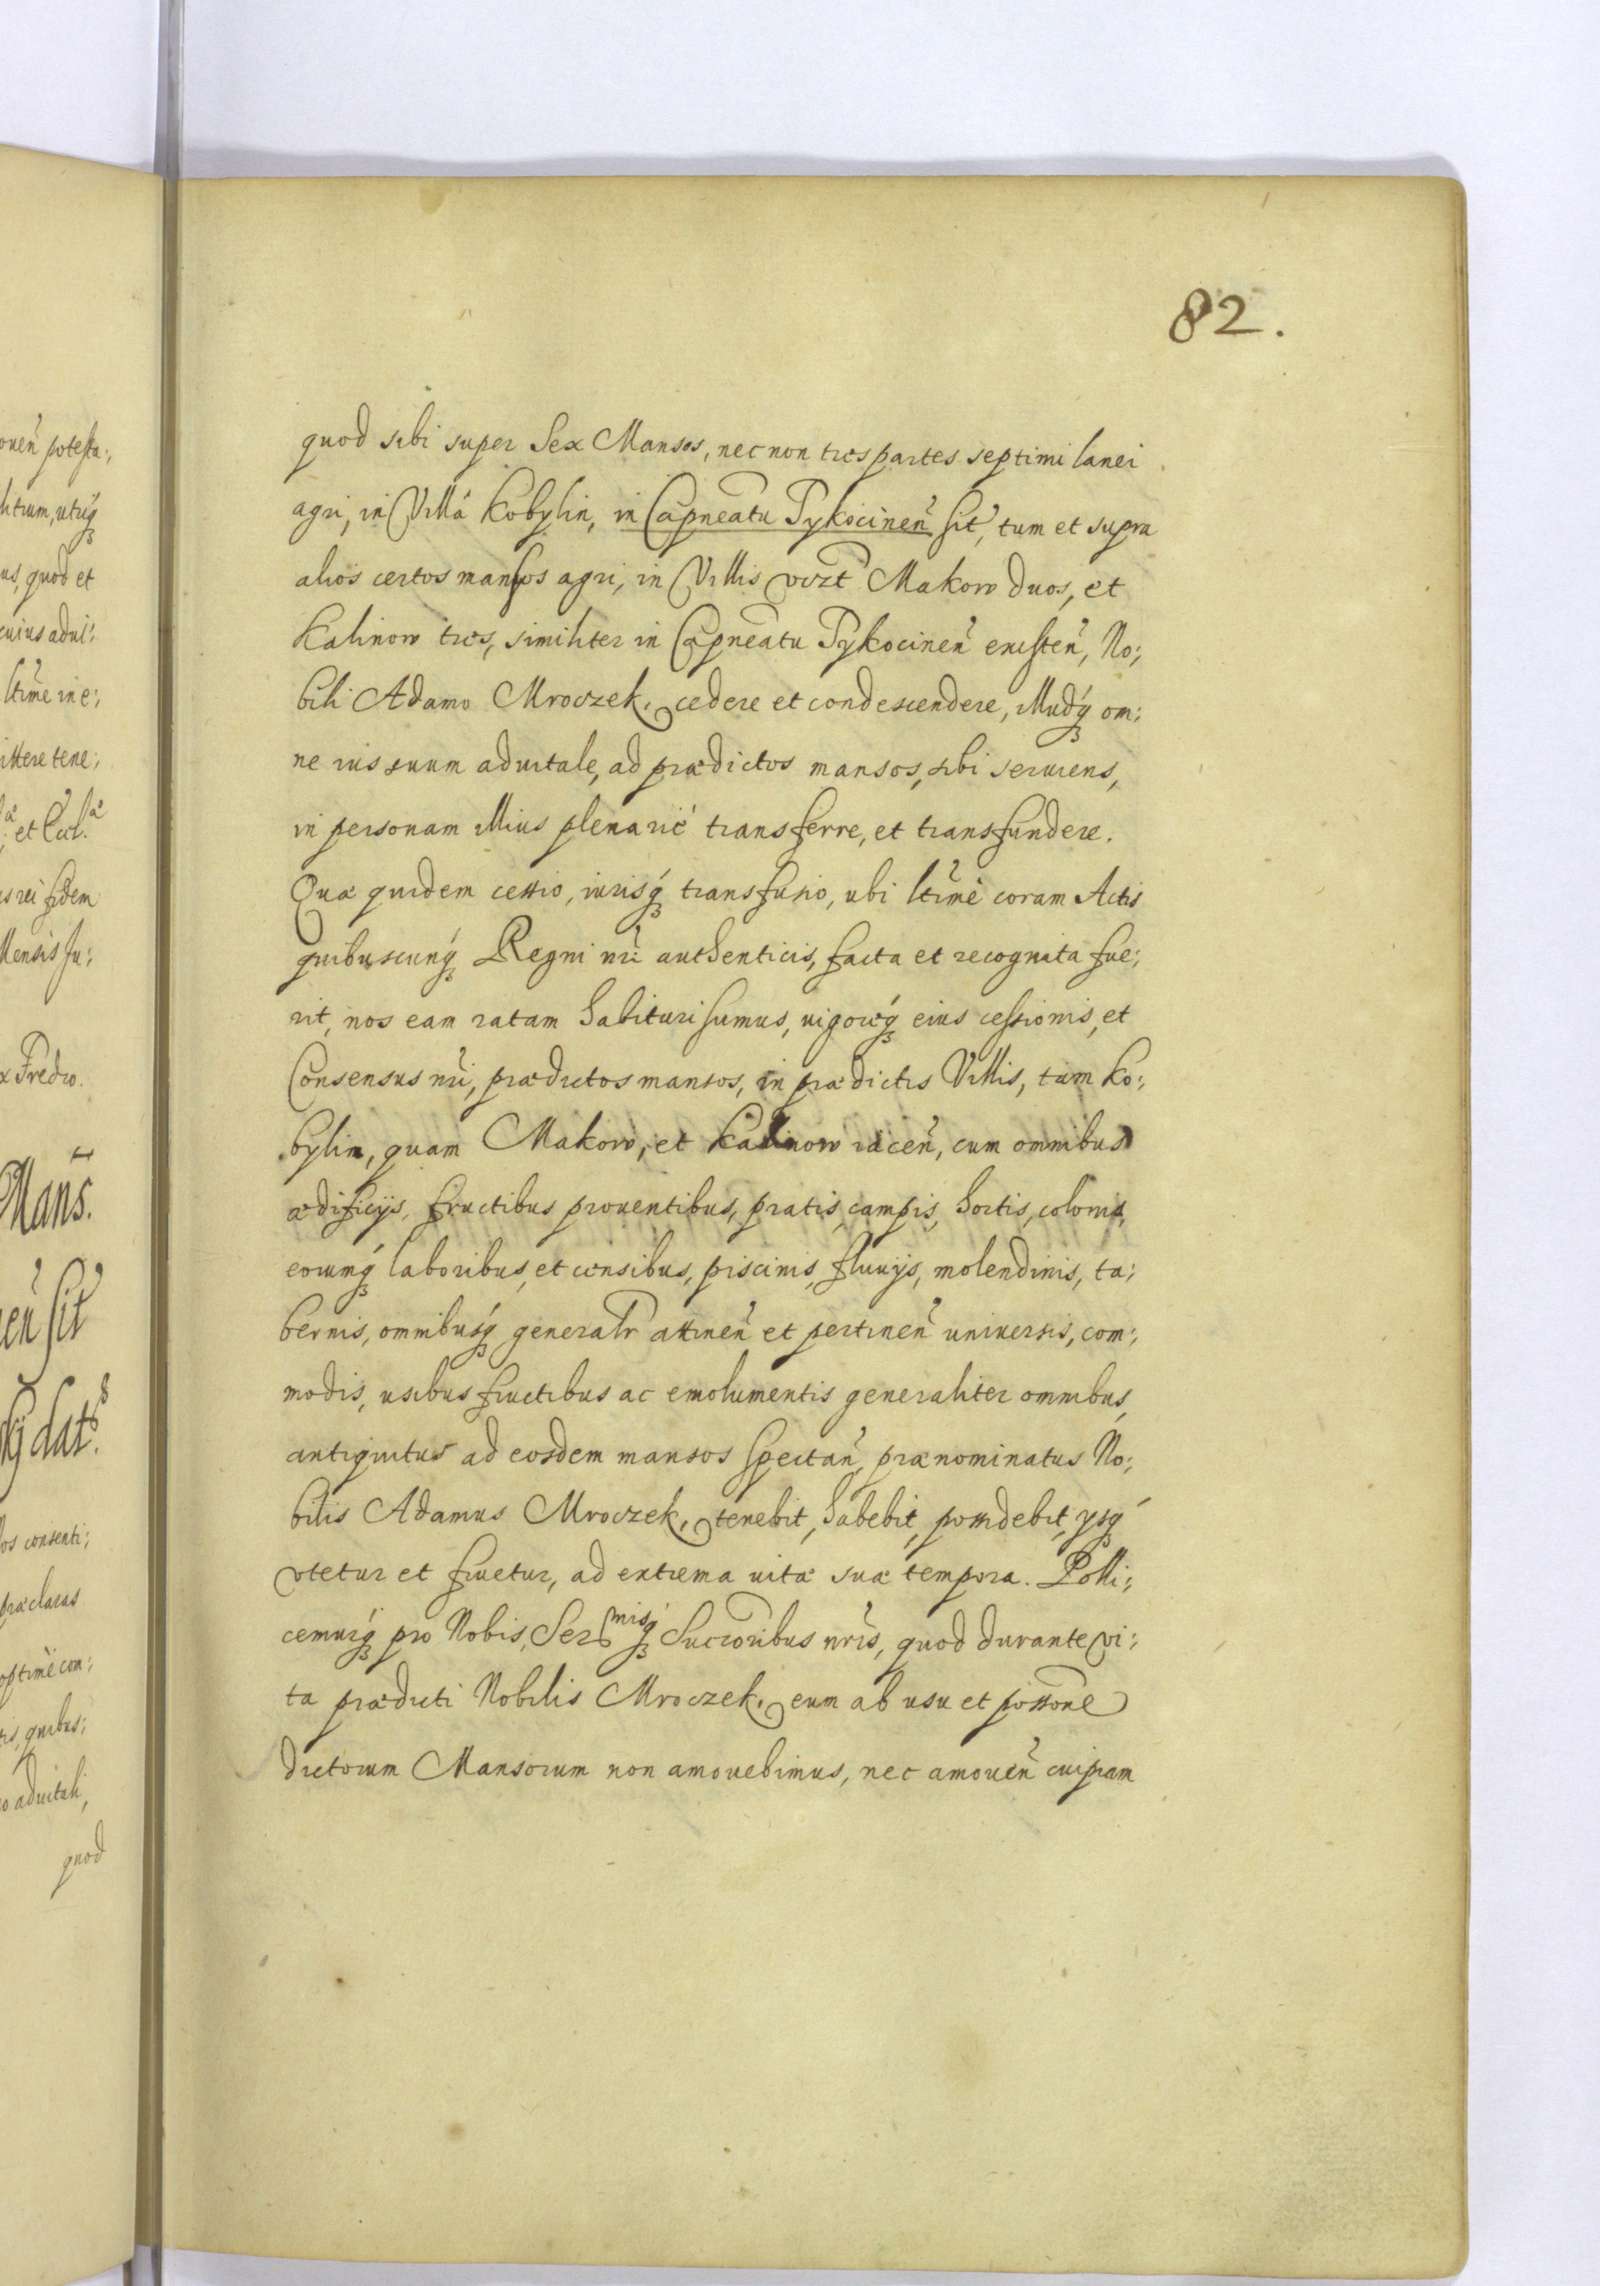 82.
quod sibi super Sex Mansos, nec non tres partes septimi lanei
agri, in Villâ Kobylin, in Capneatu Tykocinen̄ sit̄, tum et supra
alios certos mansos agri, in Villis vczt Makow duos, et
Kalinow tres, similiter in Capneatu Tykocinen̄ existen̄, No:,
bili Adamo Mroczek, cedere et condescendere, illudq́ om:
ne ius suum aduitale, ad prædictos mansos, sibi seruiens,
in personam illius plenariè transferre, et transfundere.
Quæ quidem cessio, iurisq́ transfusio, ubi ltimè coram Actis
quibuscunq́ Regni nri authenticis, facta et recognita fue:,
rit, nos eam ratam habituri sumus, uigoreq́ eius cessionis, et
Consensus nri, prædictos mansos, in prædictis Villis, tam Ko:,
bylin, quam Makow, et Kalinow iacen̄, cum omnibus
ædificijs, fructibus prouentibus, pratis, campis, hortis, colonis,
eorumq́ laboribus, et censibus, piscinis, fluuijs, molendinis, ta:,
bernis, omnibusq́ generalr̄ attinen̄ et pertinen̄ uniuersis, com:,
modis, usibus fructibus ac emolumentis generaliter omnibus,
antiquitus ad eosdem mansos spectan̄, prænominatus No:,
bilis Adamus Mroczek, tenebit, habebit, possidebit, ysq́
vtetur et fruetur, ad extrema uitæ suæ tempora. Polli:,
cemurq́ pro Nobis, Ser<sup>misq́</sup> Succoribus nris, quod durante vi:,
ta prædicti Nobilis Mroczek, eum ab usu et possone
dictorum Mansorum non amouebimus, nec amouen̄ cuipiam
ouen̄ potesta:,
us, quod et
cuius adui:
ltime in e:,
ittere tene:,
s rei fidem
Mensis Ju:,
x Fredro.
Mans.
en̄ sit̄
dat.
os consenti:,
præclaras
tis, quibus:,
o aduitali,
quod